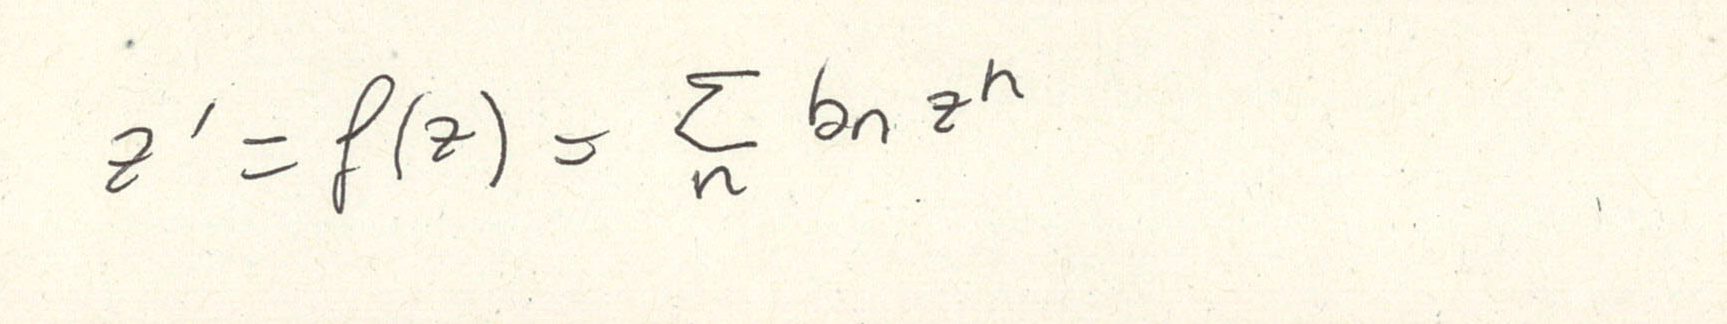 z' = f(z) = \sum_{n} b_n z^n